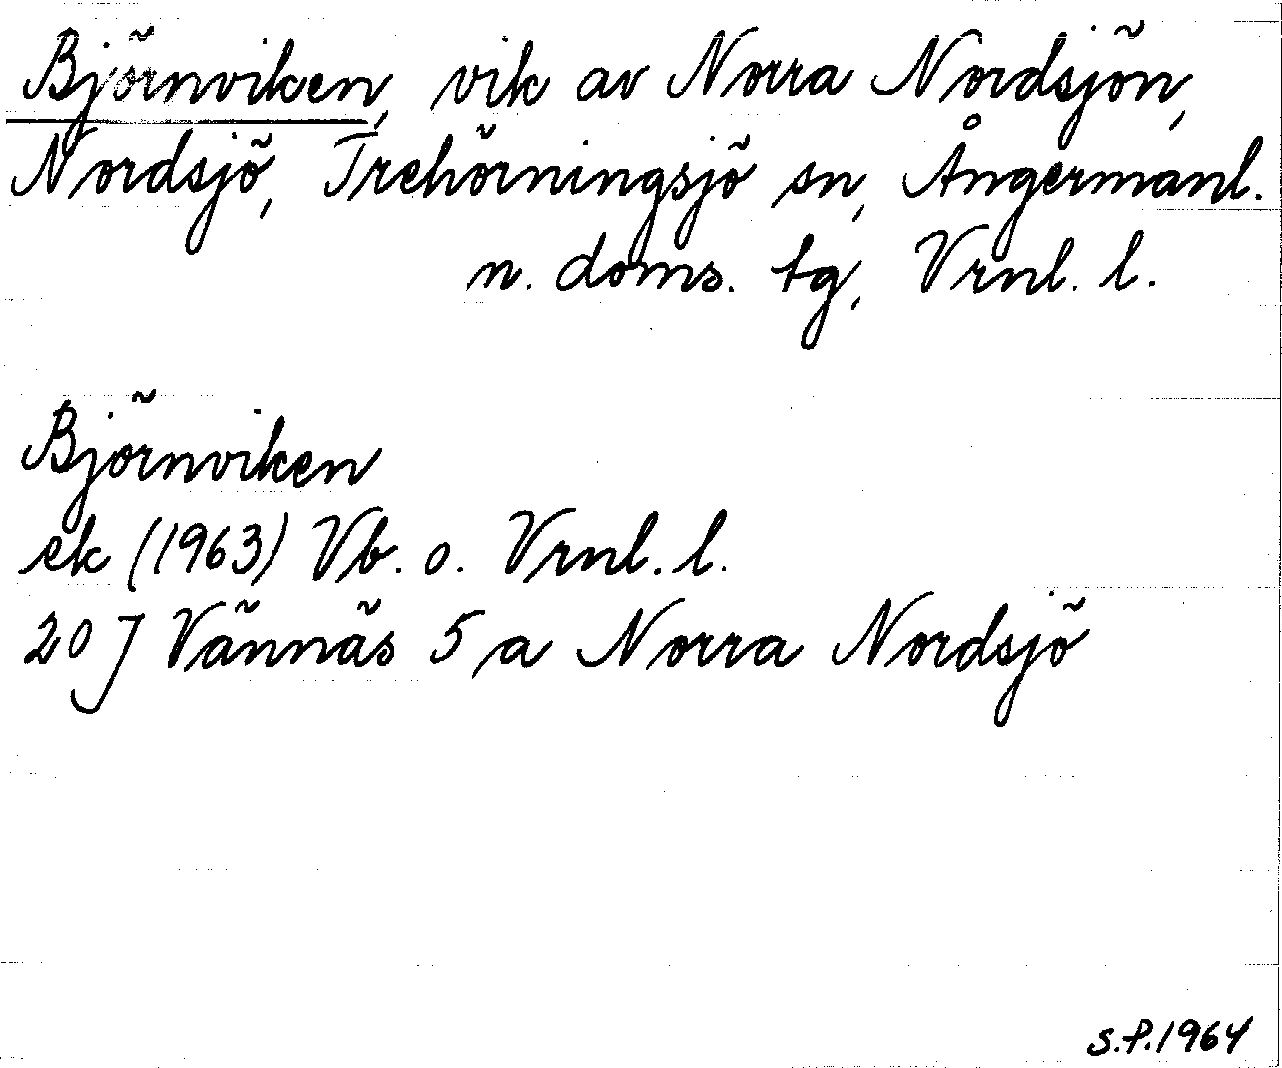 Björnviken, vik av Norra Nordsjön,
Nordsjö, Trehörningsjö sn, Ångermanl.
n. doms. tg, Vrnl. l.
Björnviken
ek (1963) Vb. o. Vrnl. l.
20 J Vännäs 5 a Norra Nordsjö
S.P.1964